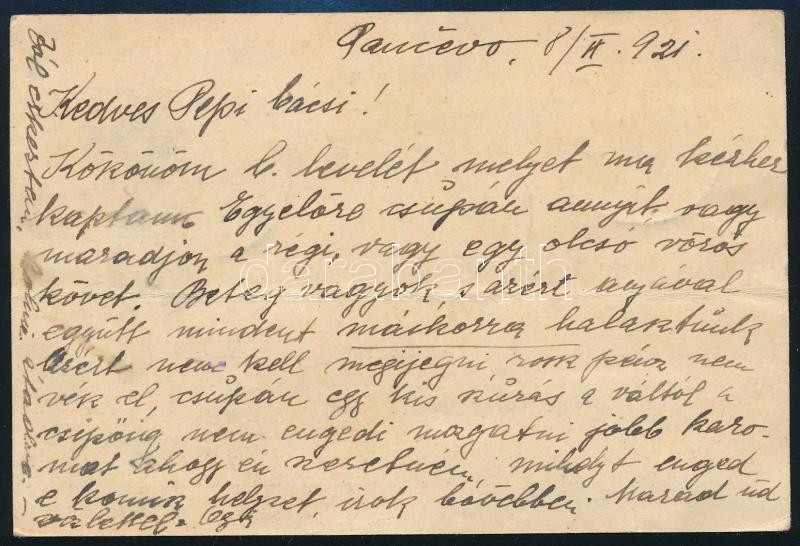 Pančevo, 8/II. 921.
Kedves Pepi bácsi!
Kökönöm b. levelét melyet ma kézhez
kaptam. Egyelőre csupán annyit, vagy
maradjon a régi, vagy egy olcsó vörös
követ. Beteg vagyok s azért anyával
együtt mindent máskorra halasztunk
Azért nem kell megijegni rossz pénz nem
vék el, csupán egy kis szúrás a váltól a
csipőig nem engedi mozgatni jobb karo-
mat ahogy én szeretném, mihelyt enged
e komisz helyzet, irok bővebben. Marad üd
vözlettel
darabanth